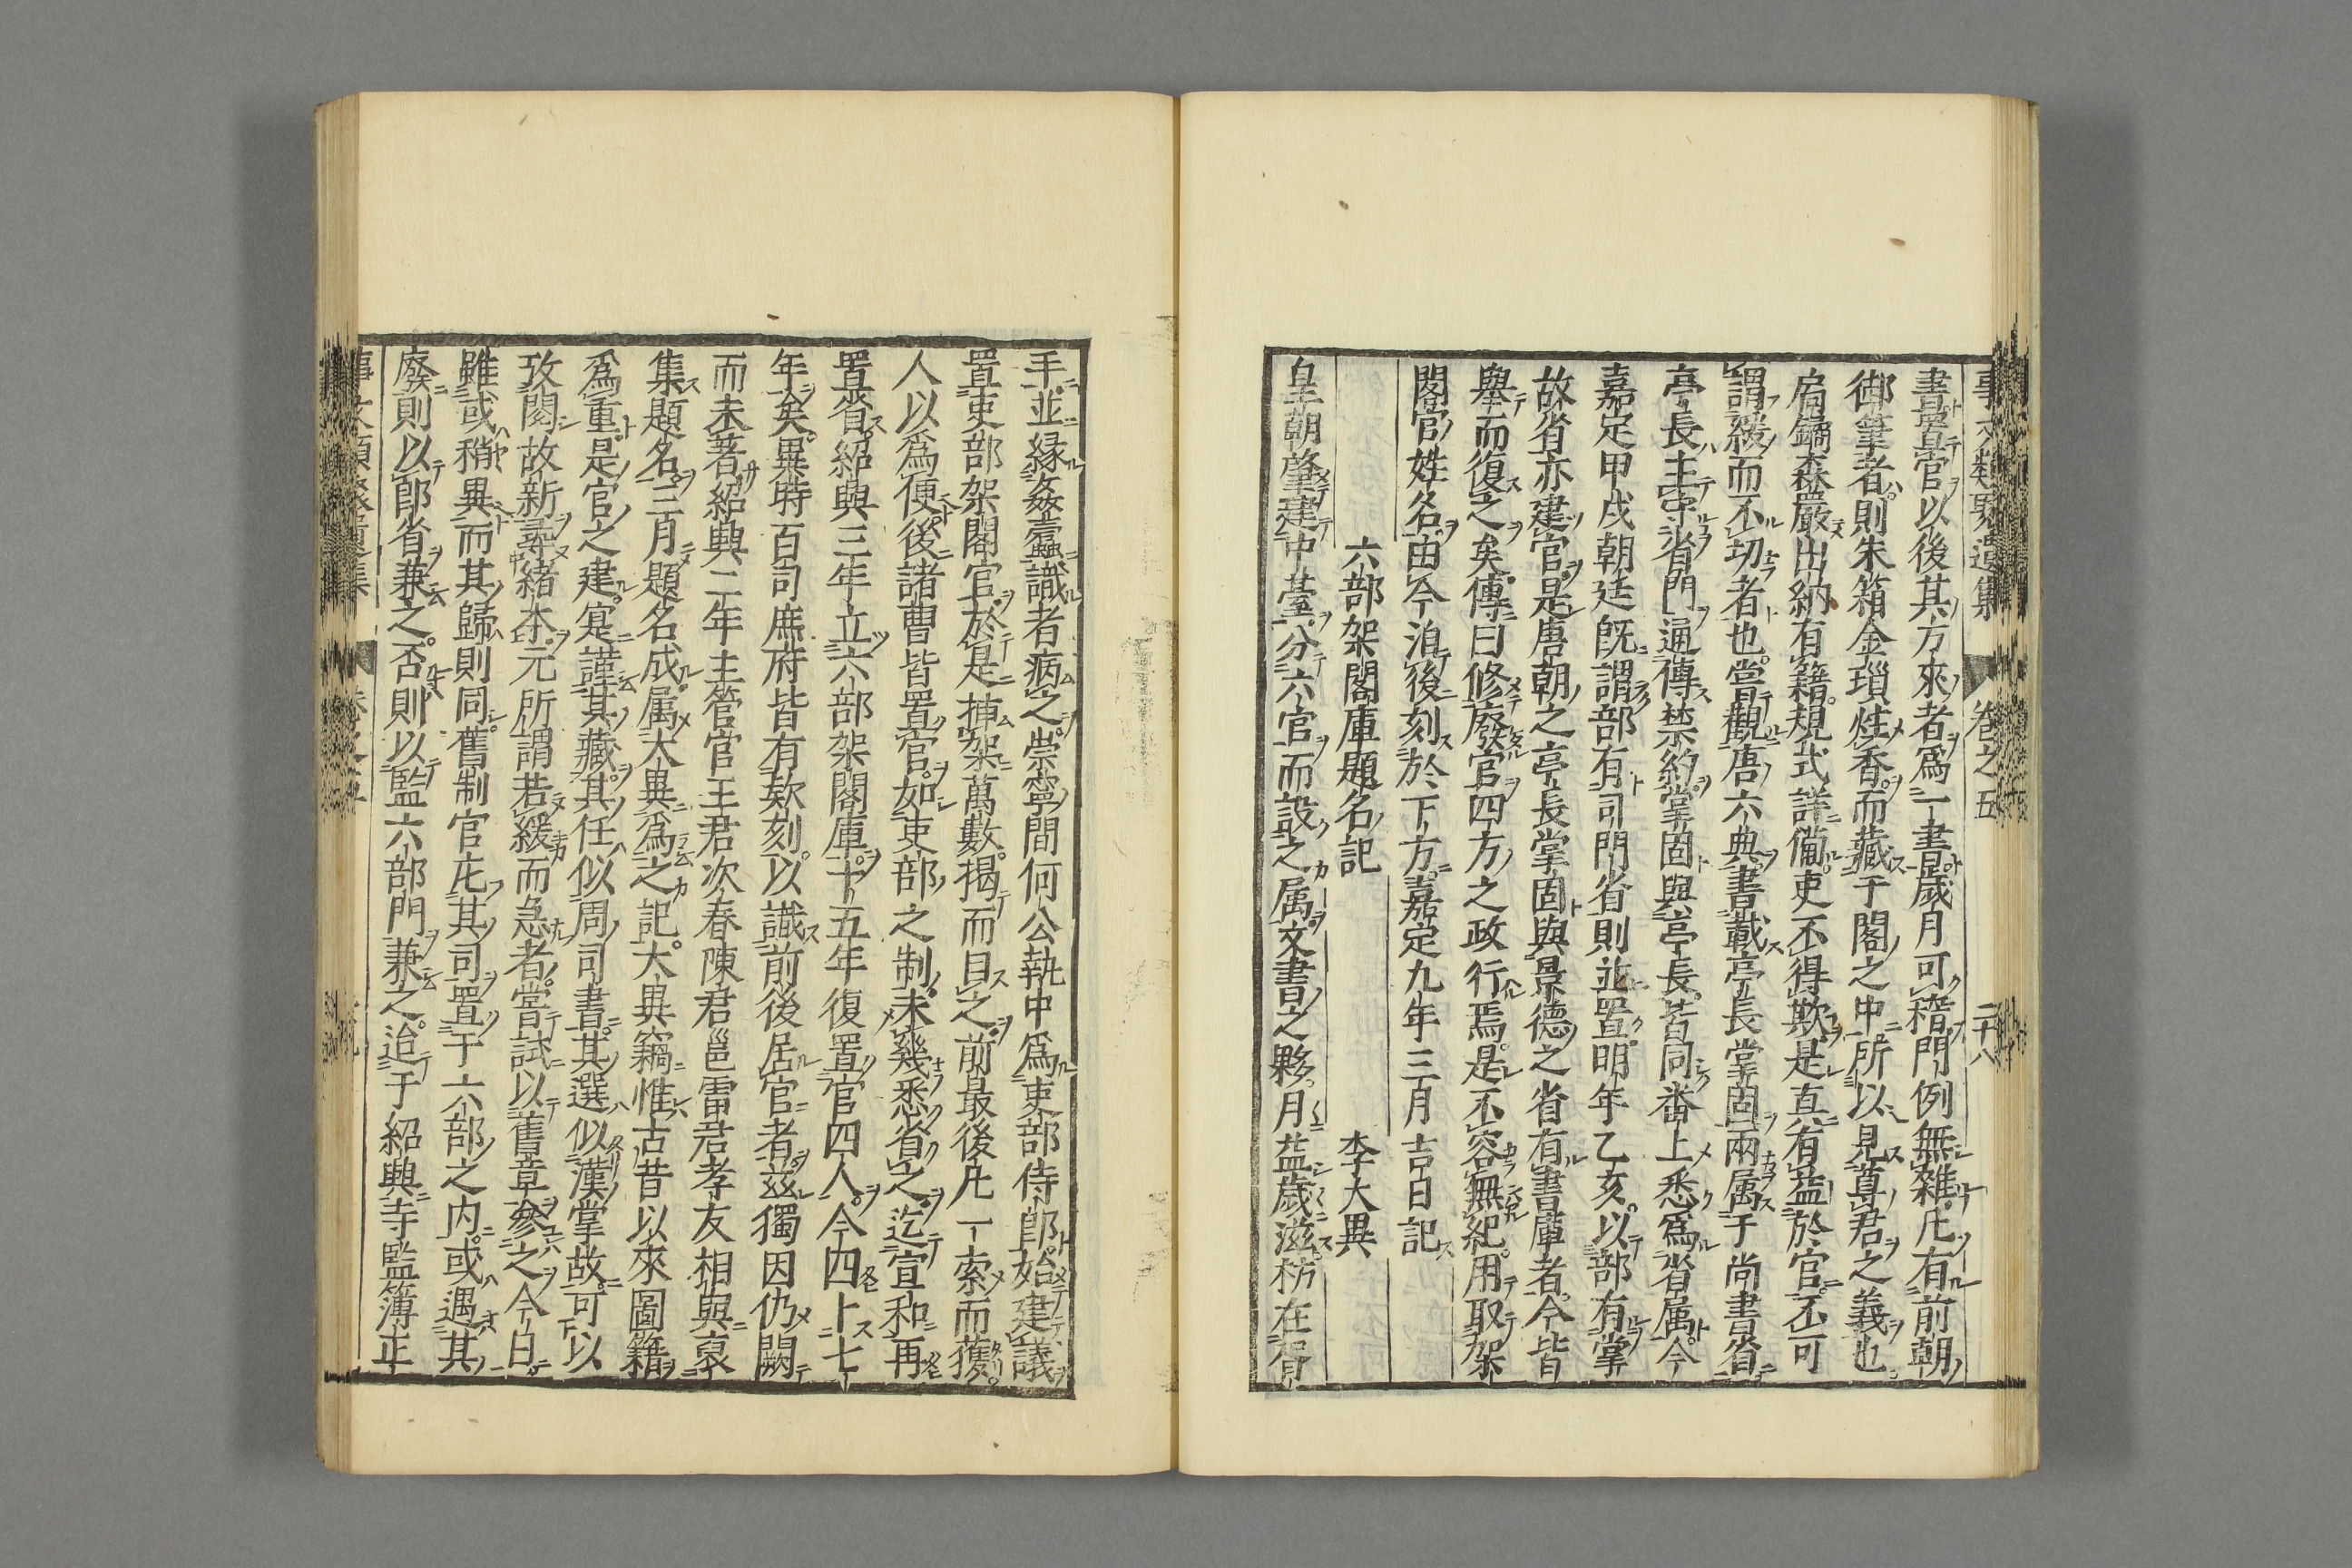 事文類聚遺集 卷之五 二十八
書置官以後其方來者爲一書歲月可稽門例無雜凡有前朝
御筆者則朱箱金瑣炷香而藏于閣之中所以見尊君之義也
扃鐍森嚴出納有籍規式詳備吏不得欺是眞有益於官不可
謂緩而不切者也嘗觀唐六典書載亭長掌固兩属于尚書省
亭長主守省門通傳禁約掌固與亭長皆同番上悉爲省属今
嘉定甲戌朝廷旣謂部有司門省則並置明年乙亥以部有掌
故省亦建官是唐朝之亭長掌固與景德之省有書庫者今皆
舉而復之矣傳曰修廢官四方之政行焉是不容無紀用取架
閣官姓名由今洎後刻於下方嘉定九年三月吉日記
六部架閣庫題名記 李大異
皇朝肇建中臺分六官而設之属文書之夥月益歲滋枋在胥
手並縁姦蠧識者病之崇寧間何公執中爲吏部侍郎始建議
置吏部架閣官於是插架萬數揭而目之前最後凡一索而獲
人以爲便後諸曹皆置官如吏部之制未幾悉省之迄宣和再
置省紹興三年立六部架閣庫十五年復置官四人今四十七
年矣異時百司庶府皆有欵刻以識前後居官者茲獨因仍闕
而未著紹興二年主管官王君次春陳君邕雷君孝友相與裒
集題名三月題名成属大異爲之記大異竊惟古昔以來圖籍
爲重是官之建寔謹其藏其任似周司書其選似漢掌故可以
攷閱故新尋緒本元所謂若緩而急者嘗試以舊章參之今日
雖或稍異而其歸則同舊制官庀其司置于六部之内或遇其
廢則以郎省兼之否則以監六部門兼之迨于紹興寺監簿正